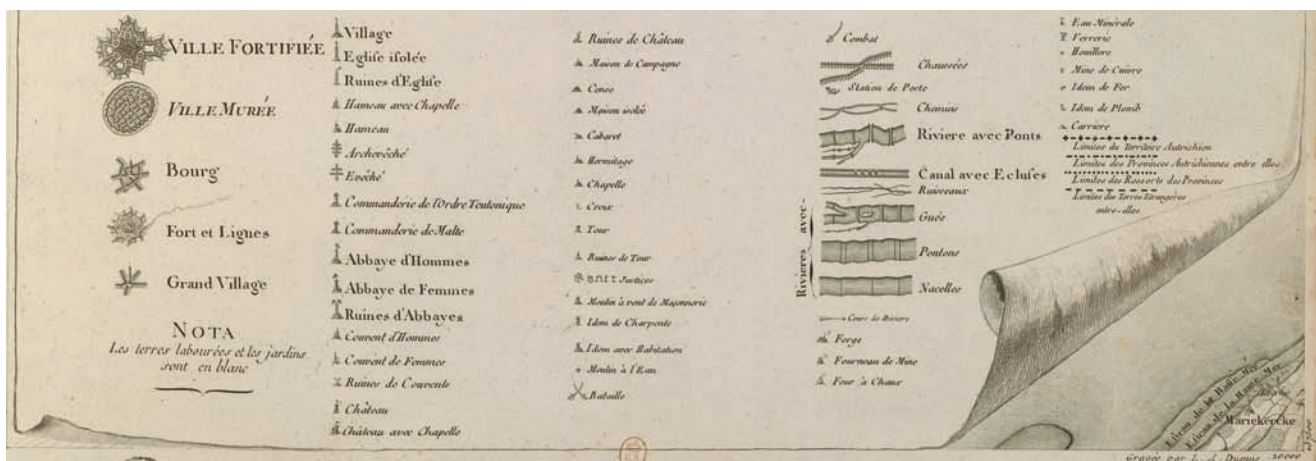 VILLE FORTIFIÉE
VILLE MURÉE
Bourg
Fort et Lignes
Grand Village
NOTA
Les terres labourées et les jardins
sont en blanc
Village
Eglise isolée
Ruines d'Eglise
Hameau avec Chapelle
Hameau
Archevêché
Evêché
Commanderie de l'Ordre Teutonique
Commanderie de Malte
Abbaye d'Hommes
Abbaye de Femmes
Ruines d'Abbayes
Couvent d'Hommes
Couvent de Femmes
Ruines de Couvents
Château
Château avec Chapelle
Ruines de Château
Maison de Campagne
Cense
Maison isolée
Cabaret
Hermitage
Chapelle
Croix
Tour
Ruines de Tour
Justices
Moulin à vent de Maçonnerie
Idem de Charpente
Idem avec Habitation
Moulin à l'Eau
Bataille
Combat
Chaussées
Station de Poste
Chemins
Riviere avec Ponts
Canal avec Ecluses
Ruisseaux
Rivieres avec
Gués
Pontons
Nacelles
Cours de Riviere
Forge
Fourneau de Mine
Four à Chaux
Eau Minérale
Verrerie
Houillere
Mine de Cuivre
Idem de Fer
Idem de Plomb
Carriere
Limites du Territoire Autrichien
Limites des Provinces Autrichiennes entre elles
Limites des Ressorts des Provinces
Limites des Terres Etrangeres
entre-elles
Lizeau de la Haute Mer
Mariekercke
Gravée par L. A. Dupuis